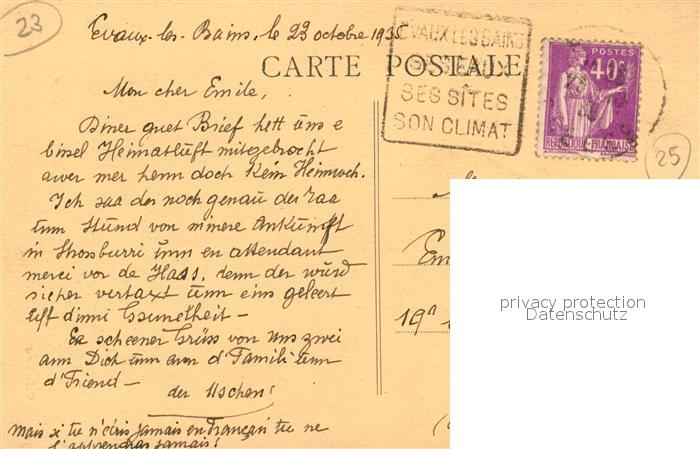 23
Evaux-les-Bains, le 23 octobre 1935
EVAUX LES BAINS
SES EAUX
SES SITES
SON CLIMAT
POSTES
40c
REPUBLIQUE FRANÇAISE
CARTE POSTALE
25
Mon cher Emile,
Diner guet Brief hett üns e
bisel Heimatluft mitgebrocht
awer mer henn doch kein Heimweh.
Ich saa der noch genau der Daa
ünn Stund von minere Ankunft
in Strosburri ünn en attendant
merci vor de Haas, denn der würd
sicher vertaxt ünn eins geleert
üff dinni Gsundheit —
Ee scheener Grüss von Uns zwei
ann Dich ünn ann d'Famili ünn
d'Friend —
der
Mais si tu n'écris jamais en français tu ne
l'apprendras jamais!
Em
19
privacy protection
Datenschutz